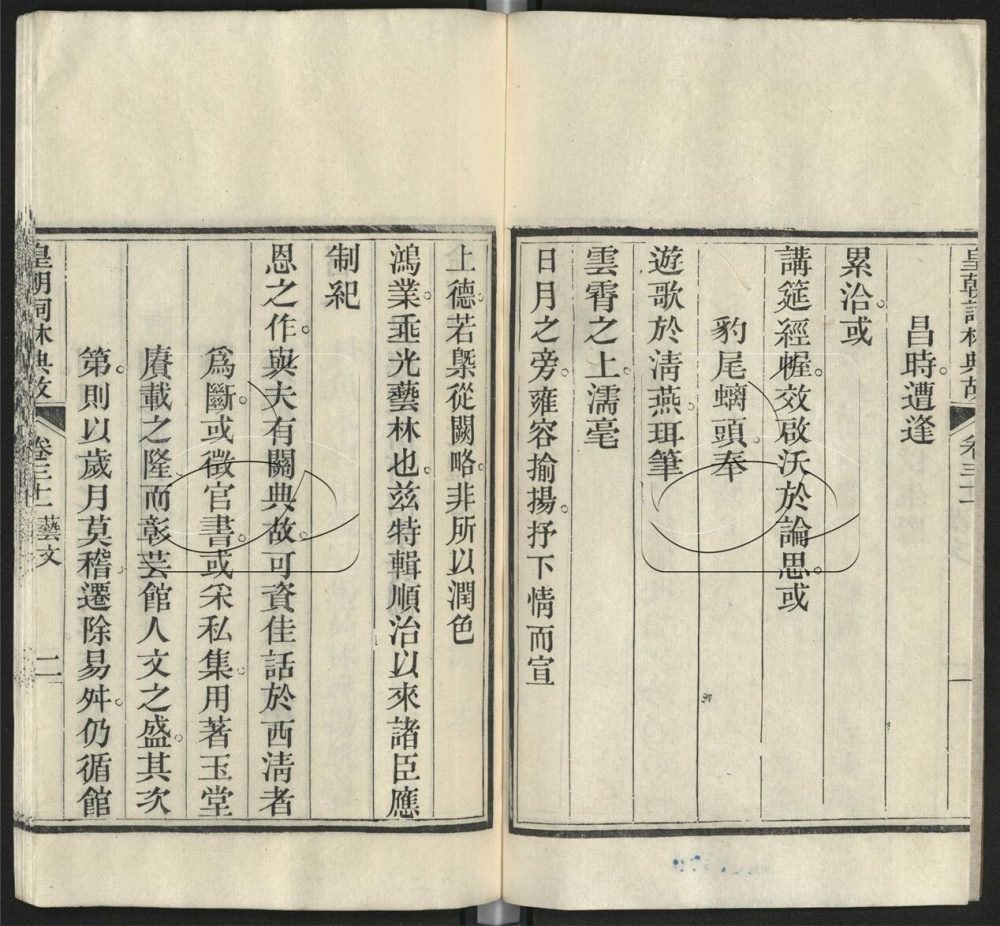 皇朝詞林典故 卷三十二 一
昌時。遭逢
累洽。或
講筵經幄。效啟沃於論思。或
豹尾螭頭。奉
遊歌於淸燕。珥筆
雲霄之上。濡毫
日月之旁。雍容揄揚。抒下情而宣
上德。若槩從闕略。非所以潤色
鴻業。垂光藝林也。茲特輯順治以來諸臣應
制紀
恩之作。與夫有關典故。可資佳話於西淸者
爲斷。或徵官書。或采私集。用著玉堂
賡載之隆。而彰芸館人文之盛。其次
第。則以歲月莫稽。遷除易舛。仍循館
皇朝詞林典故 卷三十二 藝文 二